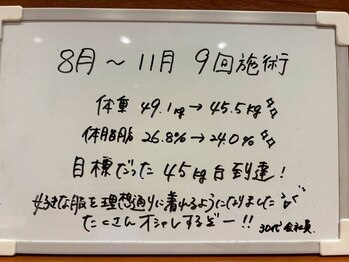 8月～11月 9回施術
体重 49.1kg→45.5kg
体脂肪 26.8%→24.0%
目標だった45kg台到達！
好きな服を理想通りに着れるようになりました
たくさんオシャレするぞー！！ 30代 会社員